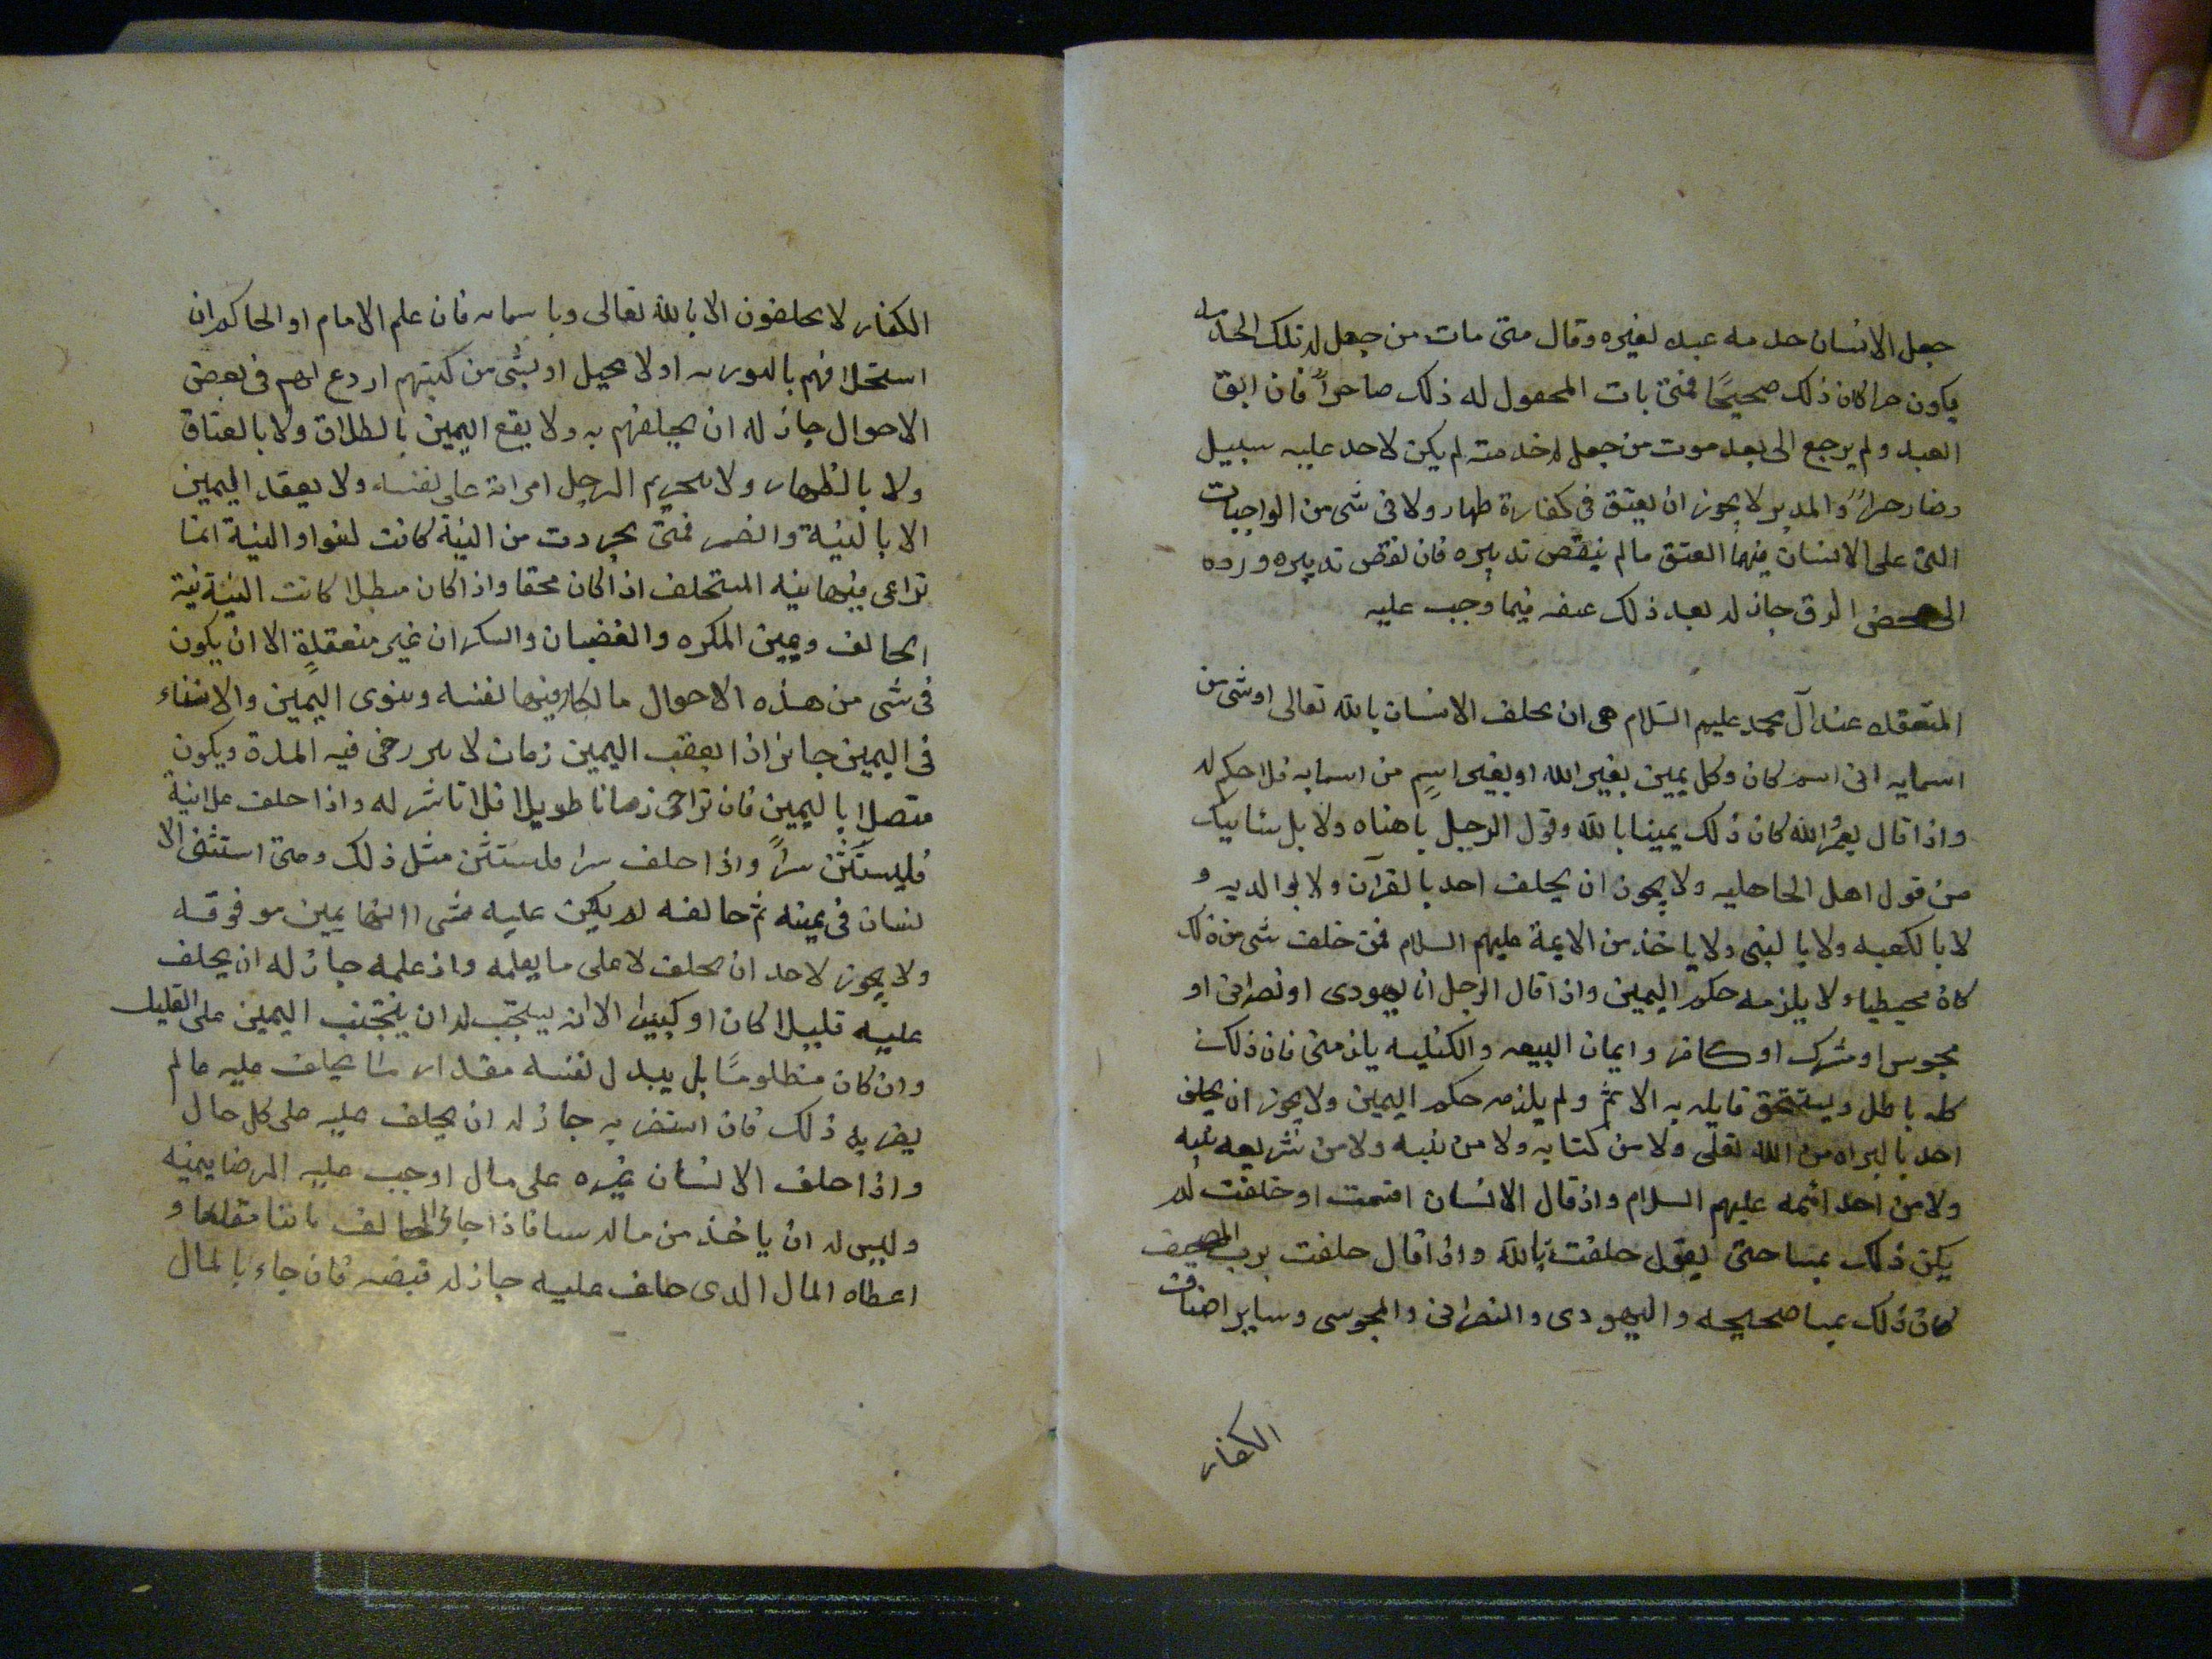 جعل الانسان خدمه عبده لغيره وقال متى مات من جعل له تلك الخدمه
يكون حرا كان ذلك صحيحًا فمتى بات المحعول له ذلك صار حراً فان ابق
العبد ولم يرجع الى بعد موت من جعل له خدمته لم يكن لاحد عليه سبيل
وصار حراً والمدبر لا يجوز ان يعتق فى كفارة ظهار ولا فى شى من الواجبات
التى على الانسان فيها العتق مالم ينقض تدبيره فان نقض تدبيره ورده
الى محض الرق جاز له بعد ذلك عتقه فيما وجب عليه
المنعقده عند آل محمد عليهم السلام هى ان يحلف الانسان بالله تعالى او شى من
اسمايه اى اسم كان وكل يمين بغير الله او بغير اسمٍ من اسمايه فلا حكم له
واذا قال لعمرُ الله كان ذلك يمينا بالله وقول الرجل ياهناه ولا بل شانيك
من قول اهل الجاهليه ولا يجوز ان يحلف احد بالقرآن ولا بوالديه و
لا بالكعبه ولا بالنبى ولا ياخذ من الايمة عليهم السلام فمن حلف بشى من ذلك
كان مخطياء ولا يلزمه حكم اليمين واذا قال الرجل انا يهودى او نصرانى او
مجوسى او مشرك او كافر وايمان البيعه والكنيسه يلزمنى فان ذلك
كله باطل ويستحق قايله به الاثم ولم يلزمه حكم اليمين ولا يجوز ان يحلف
احد بالبراه من الله تعلى ولا من كتابه ولا من نبيه ولا من شريعه نبيه
ولا من احد ائمه عليهم السلام واذ قال الانسان اقسمت او حلفت لم
يكن ذلك يمينا حتى يقول حلفت بالله واذا قال حلفت برب المصحف
كان ذلك يمينا صحيحه واليهودى والنصرانى والمجوسى وساير اصناف
الكفار
الكفار لا يحلفون الا بالله تعالى وباسمايه فان علم الامام او الحاكم ان
استحلافهم بالتوريه او الانجيل او بشى من كتبهم اردع لهم فى بعض
الاحوال جاز له ان يحلفهم به ولا يقع اليمين بالطلاق ولا بالعتاق
ولا بالظهار ولا بتحريم الرجل امراته على نفسه ولا يعقد اليمين
الا بالنية والضمير فمتى تجردت من النية كانت لغوا والنية انما
تراعى فيها نيه المستحلف اذا كان محقا واذا كان مبطلا كانت النية نية
الحالف ويمين المكره والغضبان والسكران غير منعقدةٍ الا ان يكون
فى شى من هذه الاحوال مالكا فيها لنفسه وينوى اليمين والاستثناء
فى اليمين جايز اذا يعقب اليمين زمان لا يتراخى فيه المدة ويكون
متصلا باليمين فان تراخى زمانا طويلا فلا تاثير له واذا حلف علانية
فليستثن سراً واذا حلف سرا فليستثن مثل ذلك ومتى استثنى الا
نسان فى يمينه ثم خالفه لم يكن عليه شى لانها يمين موقوفه
ولا يجوز لاحد ان يحلف لا على ما يعلمه واذ علمه جاز له ان يحلف
عليه قليلا كان او كبيرا الا ان يستحب له ان يتجنب اليمين على القليل
وان كان مظلومًا بل يبدل لنفسه مقدار ما يحلف عليه مالم
يضر به ذلك فان استضر به جاز له ان يحلف عليه على كل حال
واذا حلف الانسان غيره على مال اوجب عليه الرضا بيمنيه
وليس له ان ياخذ من ماله شيا فاذا جاء الحالف تايبا مقلعا و
اعطاه المال الدى حلف عليه جاز له قبضه فان جاء بالمال